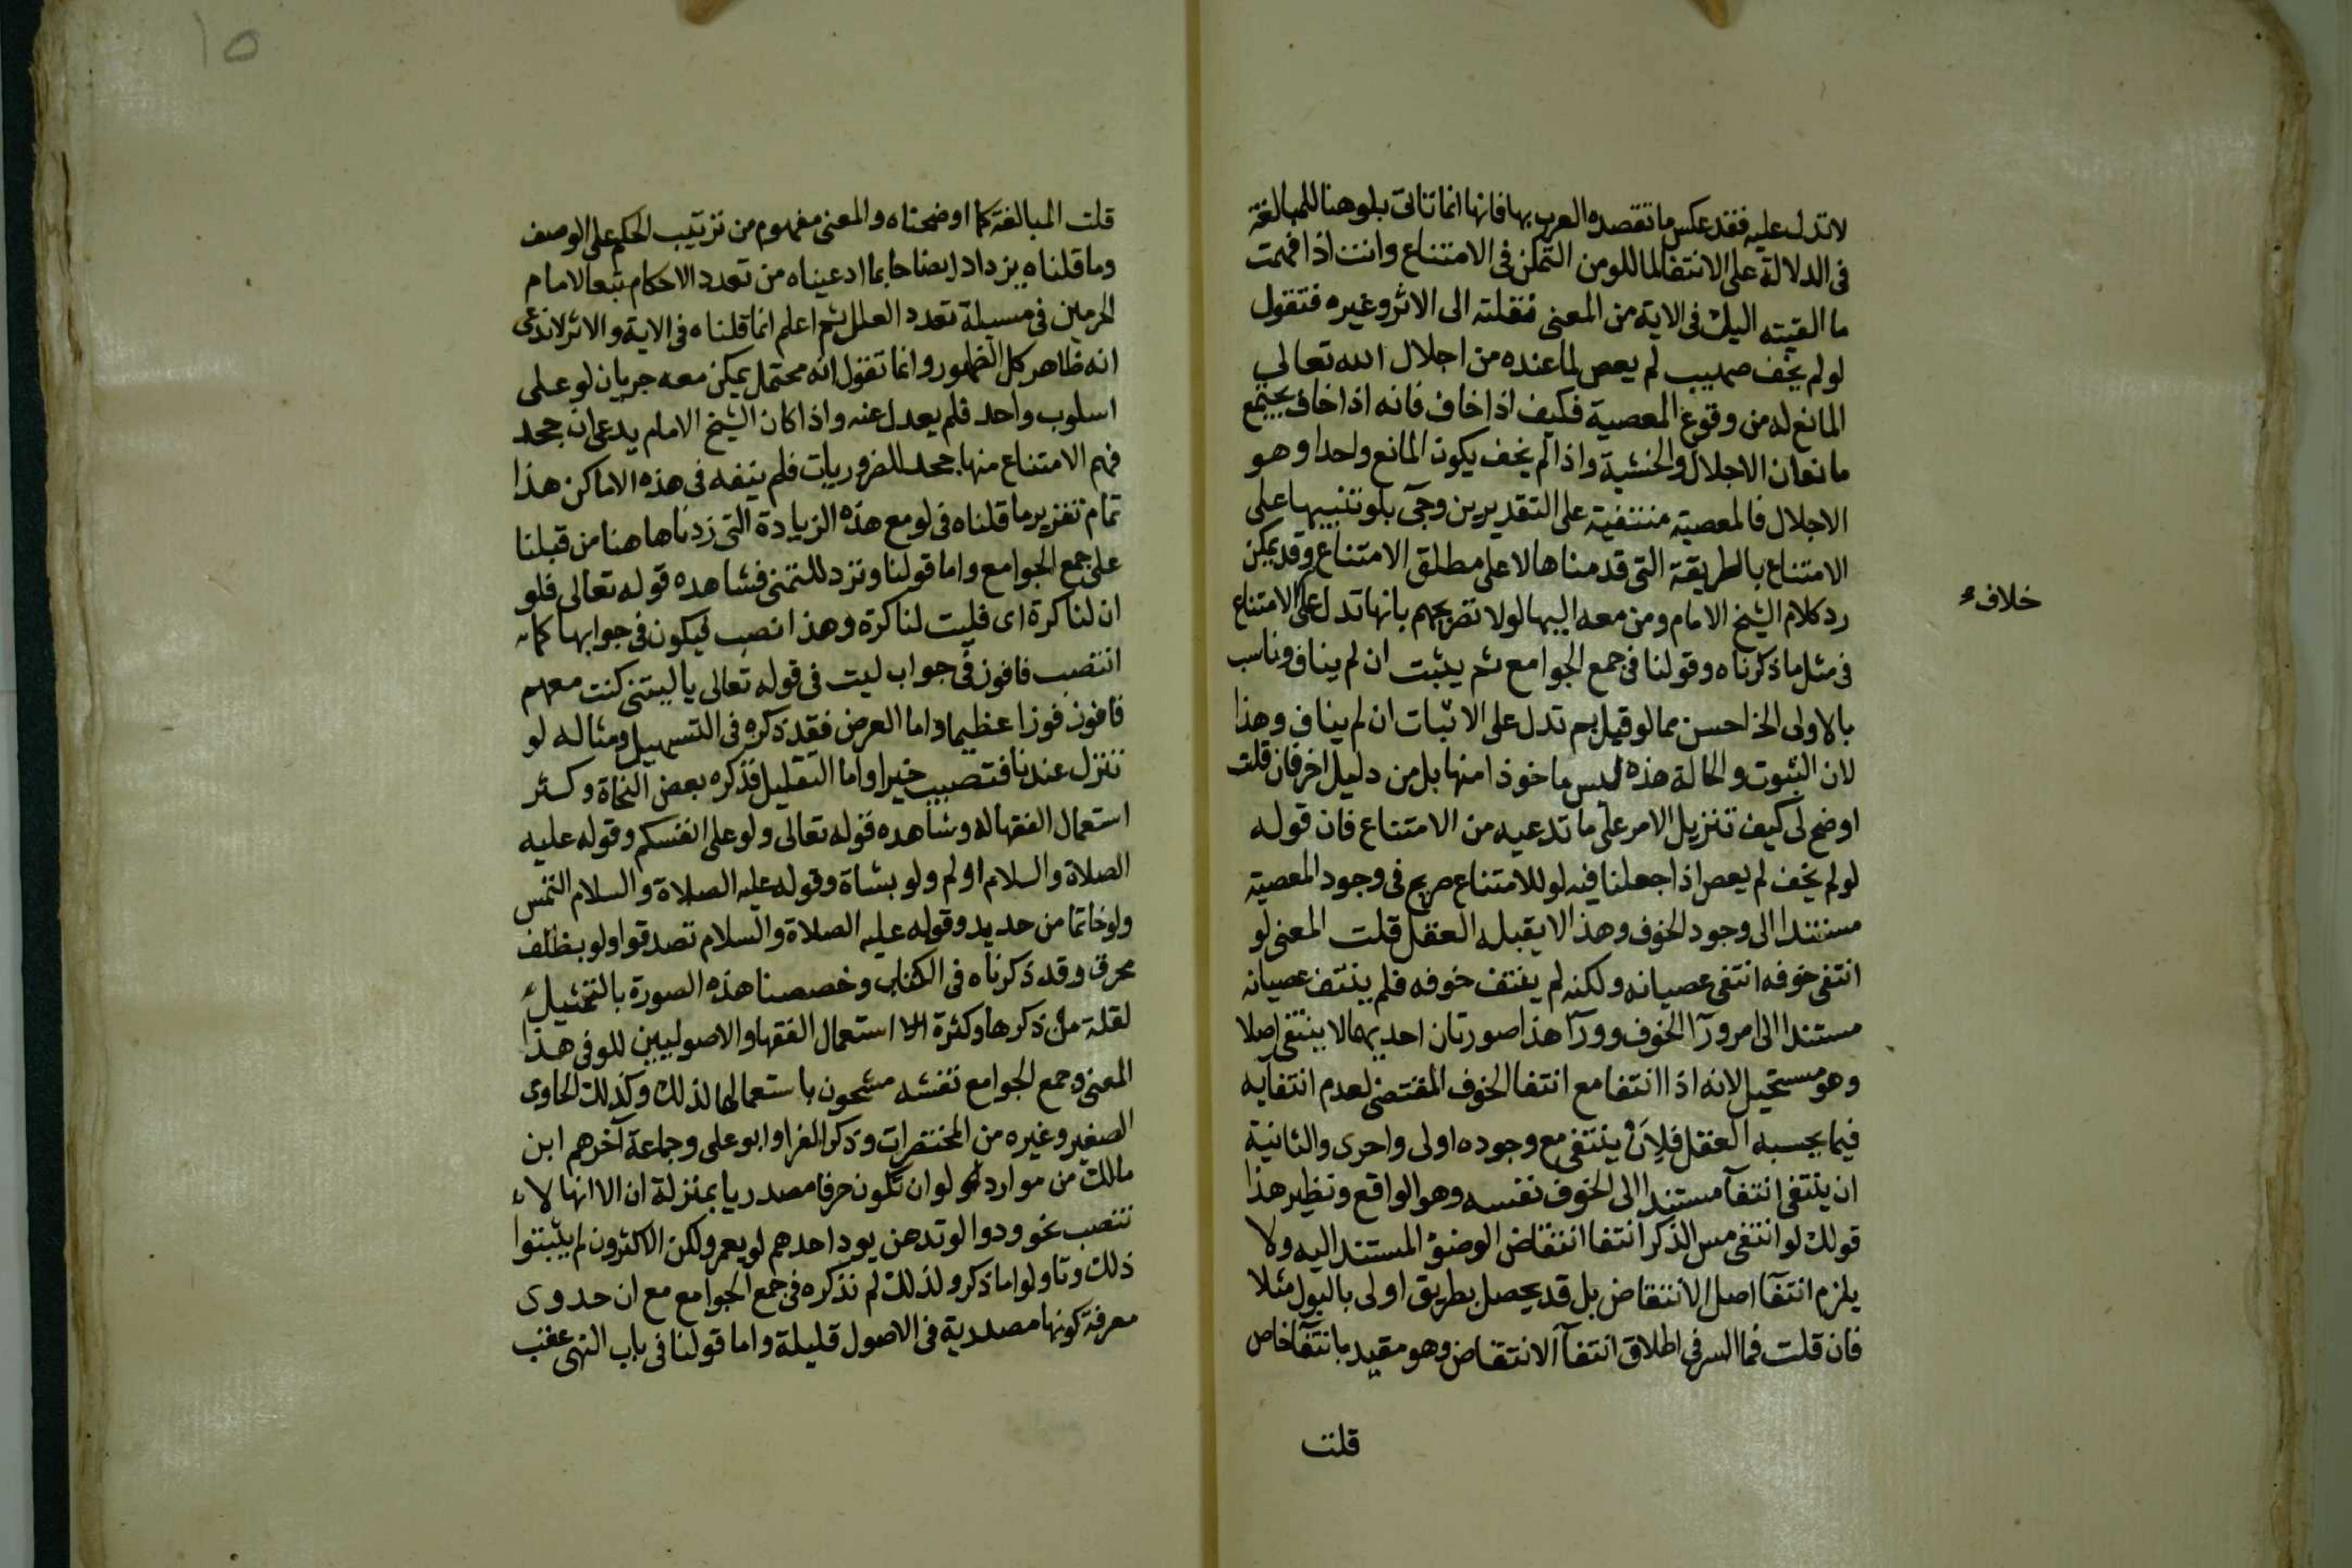 لا تدل عليه فقد عكس ما تقصده العرب بها فانها انما تاتى بلو هنا للمبالغة
فى الدلالة على الانتفا لما للو من التمكن فى الامتناع وانت اذا فهمت
ما القيته اليك فى الاية من المعنى نقلته الى الاثر وغيره فتقول
لو لم يخف صهيب لم يعص لما عنده من اجلال الله تعالى
المانع له من وقوع المعصية فكيف اذا خاف فانه اذا خاف يجتمع
مانعان الاجلال والخشية واذا لم يخف يكون المانع واحدا وهو
الاجلال فالمعصية منتفية على التقديرين وجئ بلو تنبيها على
الامتناع بالطريقة التى قدمناها لا على مطلق الامتناع وقد يمكن
رد كلام الشيخ الامام ومن معه اليها لولا تصريحهم بانها تدل على الامتناع
خلافء
فى مثل ما ذكرناه وقولنا فى جمع الجوامع ثم يثبت ان لم يناف وناسب
بالاولى الخ احسن مما لو قيل ثم تدل على الاثبات ان لم يناف وهذا
لان الثبوت والحالة هذه ليس ماخوذا منها بل من دليل اخر فان قلت
اوضح لى كيف تنزيل الامر على ما تدعيه من الامتناع فان قوله
لو لم يخف لم يعص اذا جعلنا فيه لو للامتناع صريح فى وجود المعصية
مستندا الى وجود الخوف وهذا لا يقبله العقل قلت المعنى لو
انتفى خوفه انتفى عصيانه ولكنه لم ينتف خوفه فلم ينتف عصيانه
مستندا الى امر ورآ الخوف وورآ هذا صورتان احديهما لا ينتفى اصلا
وهو مستحيل لانه اذا انتفا مع انتفا الخوف المقتضى لعدم انتفايه
فيما يحسبه العقل فلان ينتفى مع وجوده اولى واحرى والثانية
ان ينتفى انتفآ مستندا الى الخوف نفسه وهو الواقع ونظير هذا
قولك لو انتفى مس الذكر انتفا انتقاض الوضؤ المستند اليه ولا
يلزم انتفآ اصل الانتقاض بل قد يحصل بطريق اولى بالبول مثلا
فان قلت فما السر فى اطلاق انتفآ الانتقاض وهو مقيد بانتفآ خاص
قلت
١٥
قلت المبالغة كما اوضحناه والمعنى مفهوم من ترتيب الحكم على الوصف
وما قلناه يزداد ايضاحا بما ادعيناه من تعدد الاحكام تبعا لامام
الحرمين فى مسيلة تعدد العلل ثم اعلم انما قلناه فى الاية والاثر لا ندعى
انه ظاهر كل الظهور وانما نقول انه محتمل يمكن معه جريان لو على
اسلوب واحد فلم يعدل عنه واذا كان الشيخ الامام يدعى ان جحد
فهم الامتناع منها جحد للضروريات فلم ينفه فى هذه الاماكن هذا
تمام تقرير ما قلناه فى لو مع هذه الزيادة التى زدناها هنا من قبلنا
على جمع الجوامع واما قولنا وترد للتمنى فشاهده قوله تعالى فلو
ان لنا كرة اى فليت لنا كرة وهذا نصب فيكون فى جوابها كما
انتصب فافوز فى جواب ليت فى قوله تعالى يا ليتنى كنت معهم
فافوز فوزا عظيما واما العرض فقد ذكره فى التسهيل ومثاله لو
تنزل عندنا فتصيب خيرا واما التقليل فذكره بعض النحاة وكثر
استعمال الفقها له وشاهده قوله تعالى ولو على انفسكم وقوله عليه
الصلاة والسلام اولم ولو بشاة وقوله عليه الصلاة والسلام التمس
ولو خاتما من حديد وقوله عليه الصلاة والسلام تصدقوا ولو بظلف
محرق وقد ذكرناه فى الكتاب وخصصنا هذه الصورة بالتمثيل
لقلة من ذكرها وكثرة استعمال الفقها والاصوليين للو فى هذا
المعنى وجمع الجوامع نفسه مشحون باستعمالها لذلك وكذلك الحاوى
الصغير وغيره من المختصرات وذكر الفرا وابو على وجماعة آخرهم ابن
مالك من موارد لو ان تكون حرفا مصدريا بمنزلة ان الا انها لا
تنصب نحو ودوا لو تدهن يود احدهم لو يعمر ولكن الاكثرون لم يثبتوا
ذلك وتاولوا ما ذكر ولذلك لم نذكره فى جمع الجوامع مع ان جدوى
معرفة كونها مصدرية فى الاصول قليلة واما قولنا فى باب النهى عقب